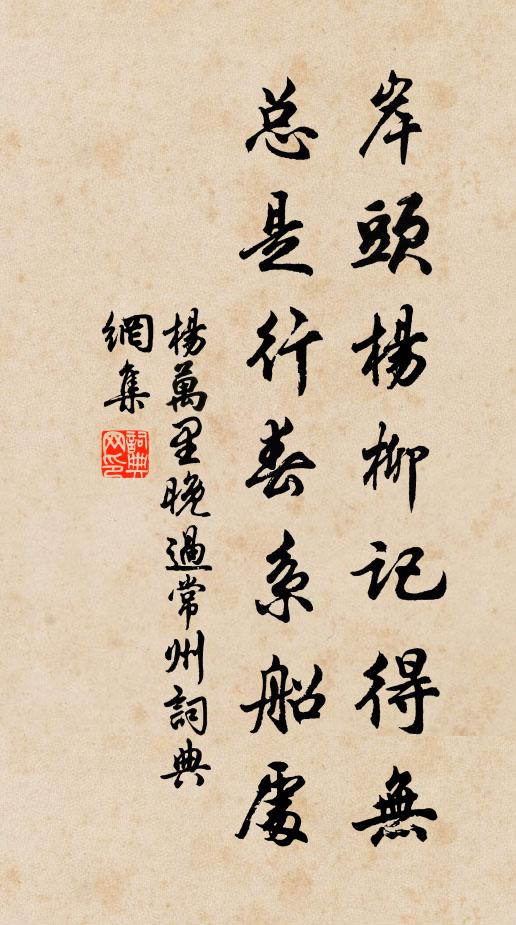 岸頭楊柳記得無
总是行春系船處
楊萬里晚過常州詞典
網集
詞典
网印